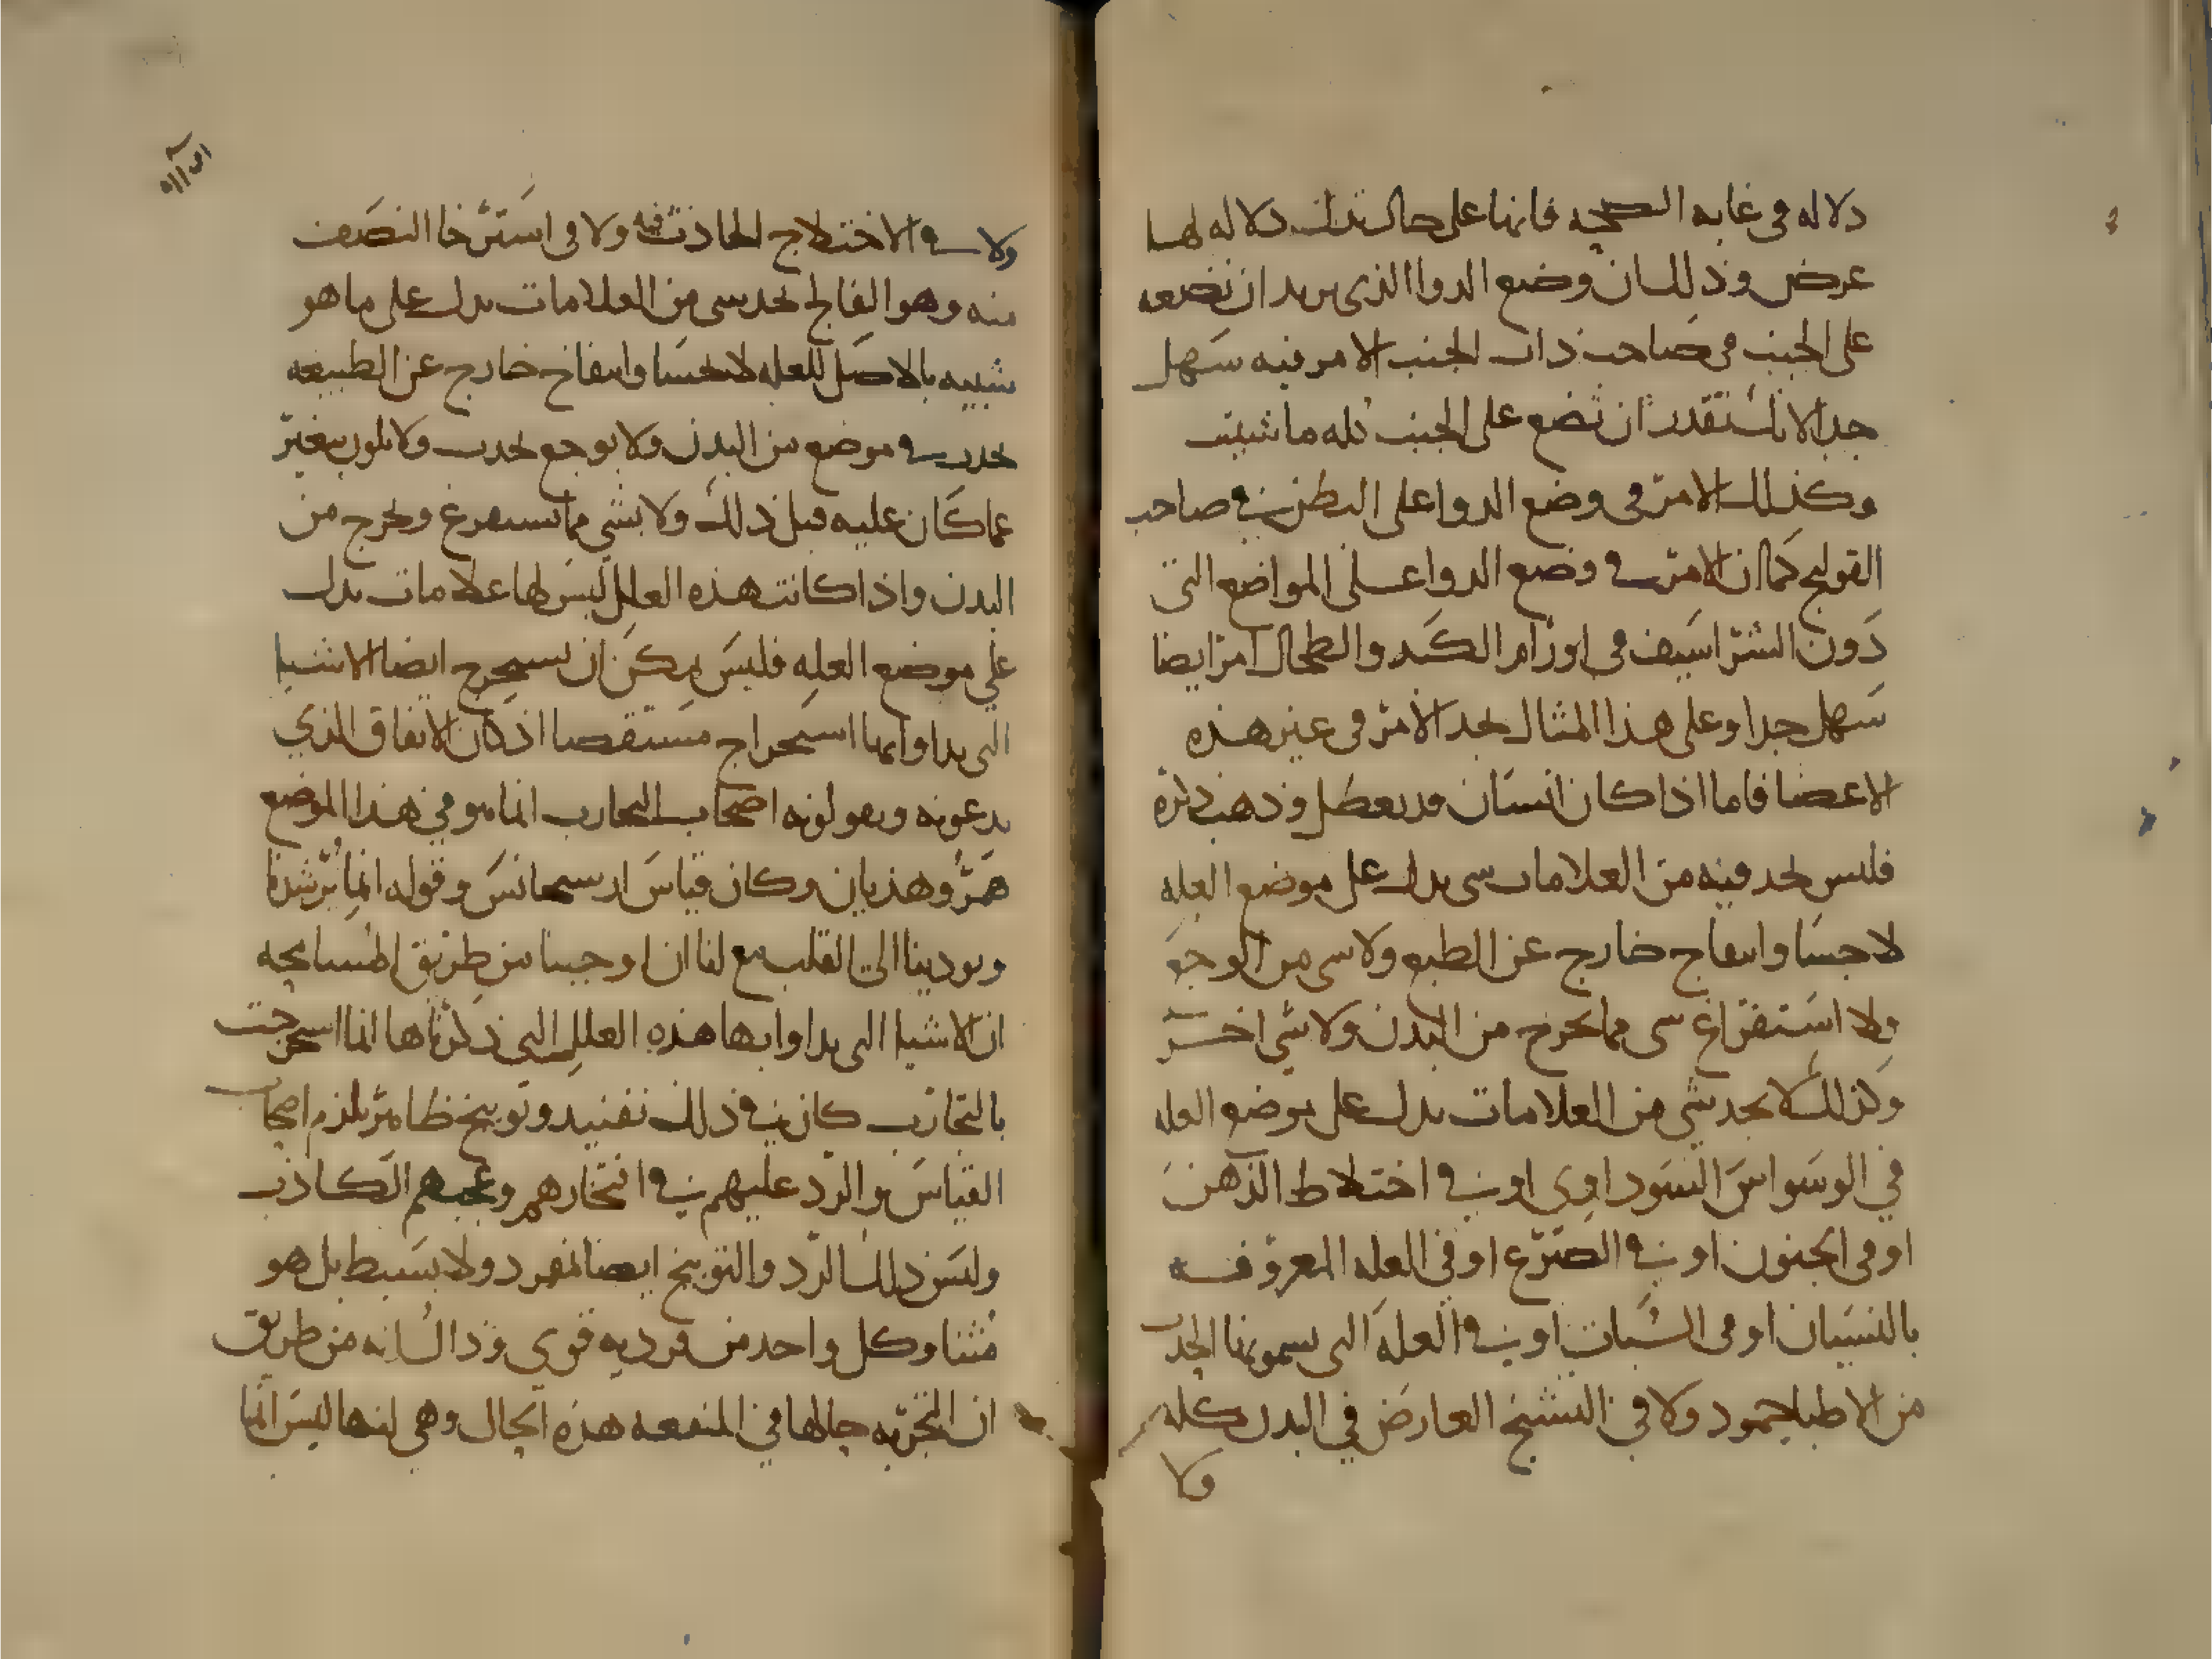 دلاله فى غايه الصحه فانها على حال تدل دلاله لها
عرض وذلك ان وضع الدوا الذى يريد ان تضعه
على الجنب فى صاحب ذات الجنب الامر فيه سهل
جدا لانك تقدر ان تضع على الجنب كله ما شيت
وكذلك الامر فى وضع الدوا على البطن فى صاحب
القولنج كما ان الامر فى وضع الدوا على المواضع التى
دون الشراسيف فى اورام الكبد والطحال امر ايضا
سهل جدا وعلى هذا المثال تجد الامر فى غير هذه
الاعضا فاما اذا كان انسان قد بعطل وذهب ذكره
فليس تجد فيه من العلامات شى يدل على موضع العله
لا جسا وانتفاخ خارج عن الطبع ولا شى من الوجع
ولا استفراغ شى مما يخرج من البدن ولا شى اخر
وكذلك لا تجد شى من العلامات يدل على موضع العله
فى الوسواس السوداوى او فى اختلاط الذهن
او فى الجنون او فى الصرع او فى العله المعروفه
بالنسيان او فى السبات او فى العله التى يسمونها الحدث
من الاطبا جمود ولا فى التشنج العارض فى البدن كله
ولا
ولا فى الاختلاج الحادث فيه ولا فى استرخا النصف
منه وهو الفالج تجد شى من العلامات يدل على ما هو
شبيه بالاصل للعله لا تجسا وانتفاخ خارج عن الطبيعه
تحدث فى موضع من البدن ولا بوجع تحدث ولا بلون يتغير
عما كان عليه قبل ذلك ولا بشى مما يستفرغ ويخرج من
البدن واذا كانت هذه العلل ليس لها علامات تدل
على موضع العله فليس يمكن ان يستخرج ايضا الاشيا
التى يداوا بها استخراج مستقصا اذ كان الاتفاق الذى
يدعونه ويقولونه اصحاب التجارب انما هو فى هذا الموضع
هزؤ وهذيان وكان قياس ارسسطراطس وقوله انما يرشدنا
ويودينا الى القلب مع لنا ان اوجبنا من طريق المسامحه
ان الاشيا التى يداوا بها هذه العلل التى ذكرناها انما استخرجت
بالتجارب كان فى ذلك تفنيد وتوبيخ ظاهر يلزم اصحاب
القياس والرد عليهم فى افتخارهم وعجبهم الكاذب
وليس ذلك الرد والتوبيخ ايضا بمفرد ولا بسيط بل هو
مثنا وكل واحد من فرديه قوى وذاك انه من طريق
ان التجربه حالها فى المنفعه هذه الحال وهى لنها ليس انما